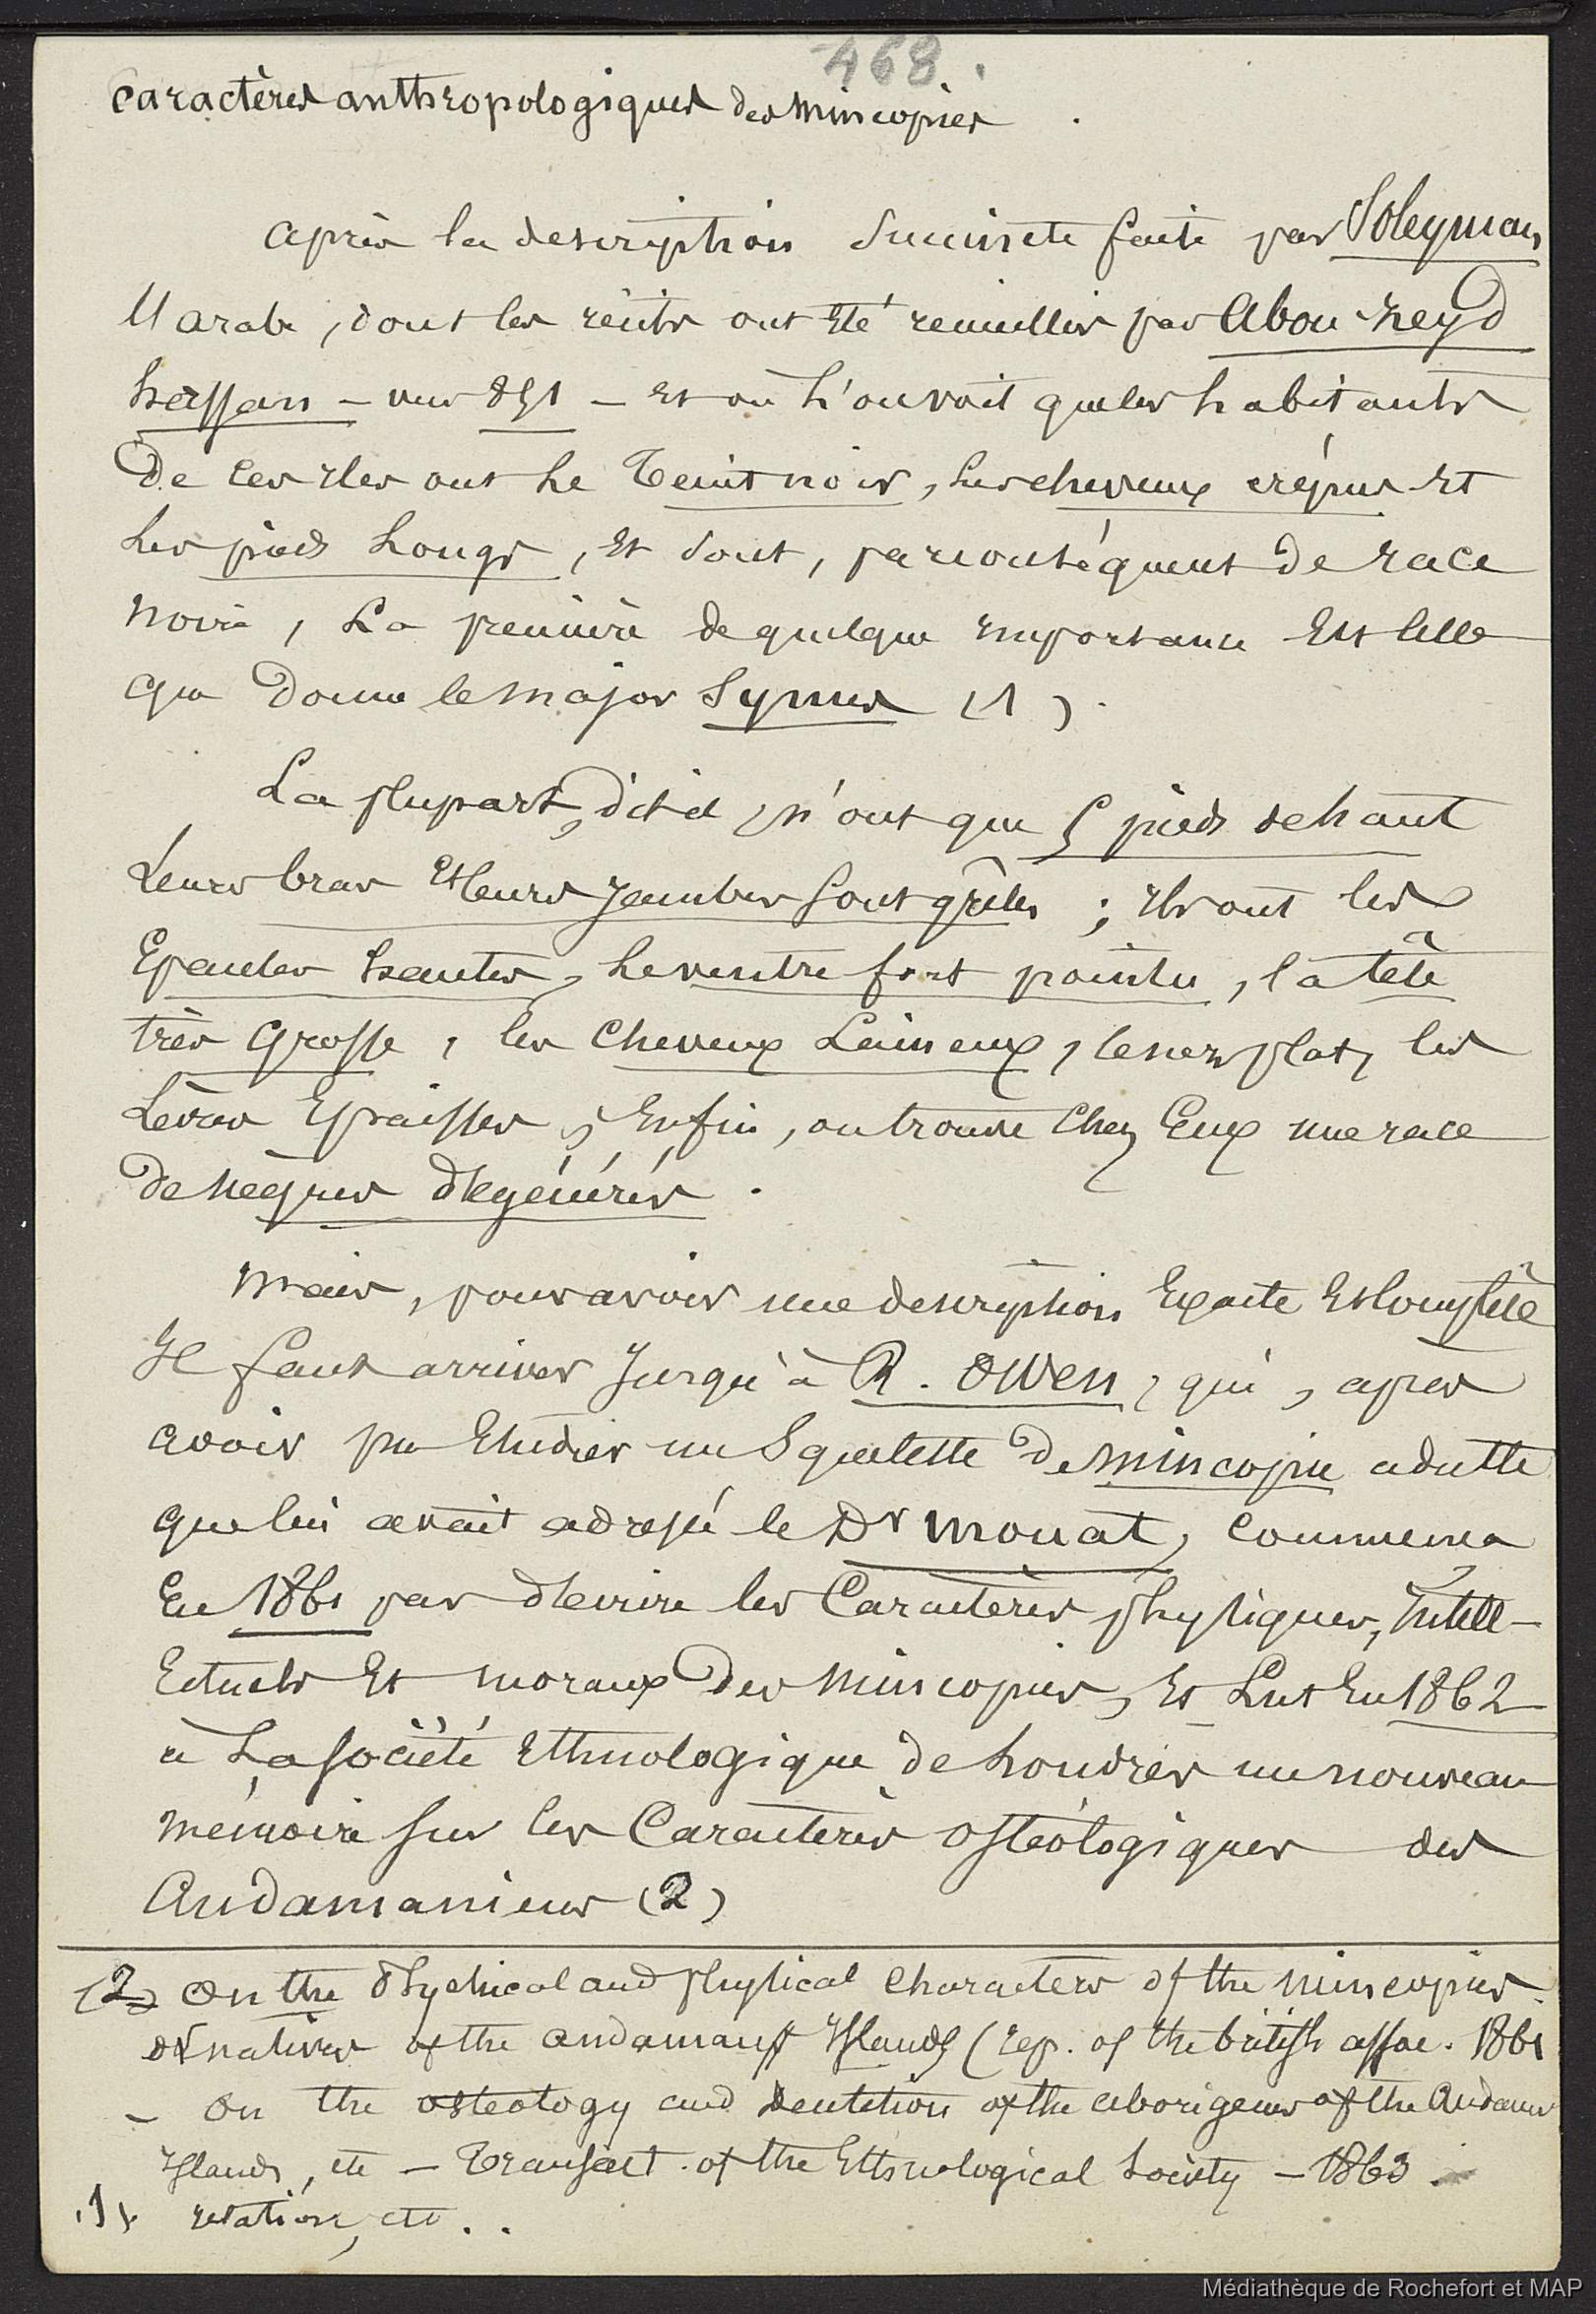 468.
Caractères anthropologiques des Mincopies.
Après la description succincte faite par Soleyman
l'arabe, dont les récits ont été recueillis par Abou-Zeyd
hassan – vers 851 – et où l'on voit que les habitants
De ces Iles ont le Teint noir, les cheveux crépus et
les pieds longs, et sont, par conséquent de race
noire, La première de quelque importance Est celle
que donne le major Symes (1).
La plupart, dit-il, n'ont que 5 pieds de haut
Leurs bras et leurs jambes sont grêles ; Ils ont les
Epaules hautes, le ventre fort pointu, la tête
très grosse, les Cheveux Laineux, le nez plat, les
Lèvres Epaisses ; Enfin, on trouve Chez Eux une race
de nègres dégénérés.
Mais, pour avoir une description Exacte Et Complète
Il faut arriver Jusqu'à R. Owen, qui, après
avoir pu Etudier un Squelette de Mincopie adulte
que lui avait adressé le Dr Mouat, Commença
En 1861 par décrire les Caractères physiques, Intell-
Ectuels Et moraux Des Mincopies, Et Lut En 1862
à La Société Ethnologique de Londres un nouveau
mémoire sur les Caractères Ostéologiques des
Andamaniens (2)
(2) On the Psychical and physical Characters of the Mincopies
or natives of the Andamans Islands (rep. of the british assoc. 1861
– On the osteology and Dentition of the aborigenes of the Andaman
Islands, etc – Transact. of the Ethnological Society – 1863 –
(1) relation, etc . .
Médiathèque de Rochefort et MAP